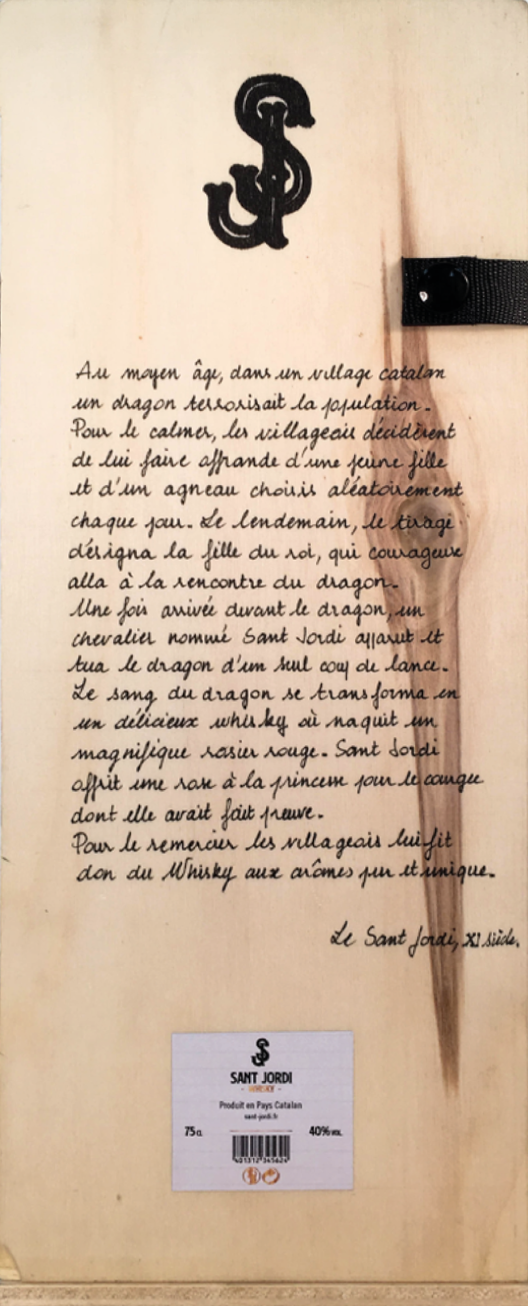 SJ
Au moyen âge, dans un village catalan
un dragon terrorisait la population.
Pour le calmer, les villageois décidèrent
de lui faire offrande d'une jeune fille
et d'un agneau choisis aléatoirement
chaque jour. Le lendemain, le tirage
désigna la fille du roi, qui courageuse
alla à la rencontre du dragon.
Une fois arrivée devant le dragon, un
chevalier nommé Sant Jordi apparut et
tua le dragon d'un seul coup de lance.
Le sang du dragon se transforma en
un délicieux whisky où naquit un
magnifique rosier rouge. Sant Jordi
offrit une rose à la princesse pour le courage
dont elle avait fait preuve.
Pour le remercier les villageois lui fit
don du Whisky aux arômes pur et unique.
Le Sant Jordi, XI siècle.
SJ
SANT JORDI
- WHISKY -
Produit en Pays Catalan
sant-jordi.fr
75 CL 40% VOL.